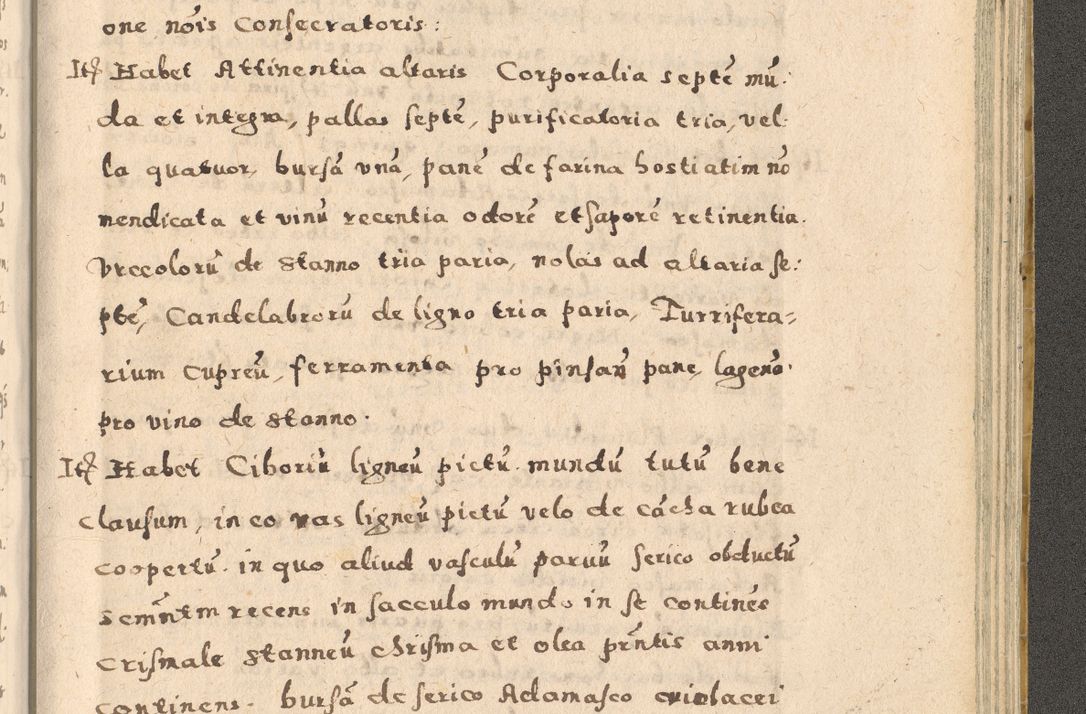 one nõis Consecratoris:
Itẽ Habet Attinentia altaris Corporalia septẽ mũ:
da et integra, pallas septẽ, purificatoria tria, vel:
la quatuor, bursã vnã, panẽ de farina hostiatim nõ
mendicata et vinũ recentia odorẽ et saporẽ retinentia.
Vrceolorũ de stanno tria paria, nolas ad altaria se:
ptẽ, Candelabrorũ de ligno tria paria, Turrifera-
rium Cupreũ, ferramenta pro pinsañ pane, lagenõ
pro vino de stanno.
Itẽ Habet Ciboriũ ligneũ pictũ mundũ tutũ bene
clausum, in eo vas ligneũ pictũ velo de cácha rubea
coopertũ. in quo aliud vasculũ paruũ serico obductũ
scm̃ntm recens in sacculo mundo in se continẽs
Crismale stanneũ chrisma et olea prñtis anni
continens. bursã de serico Adamasco violacei